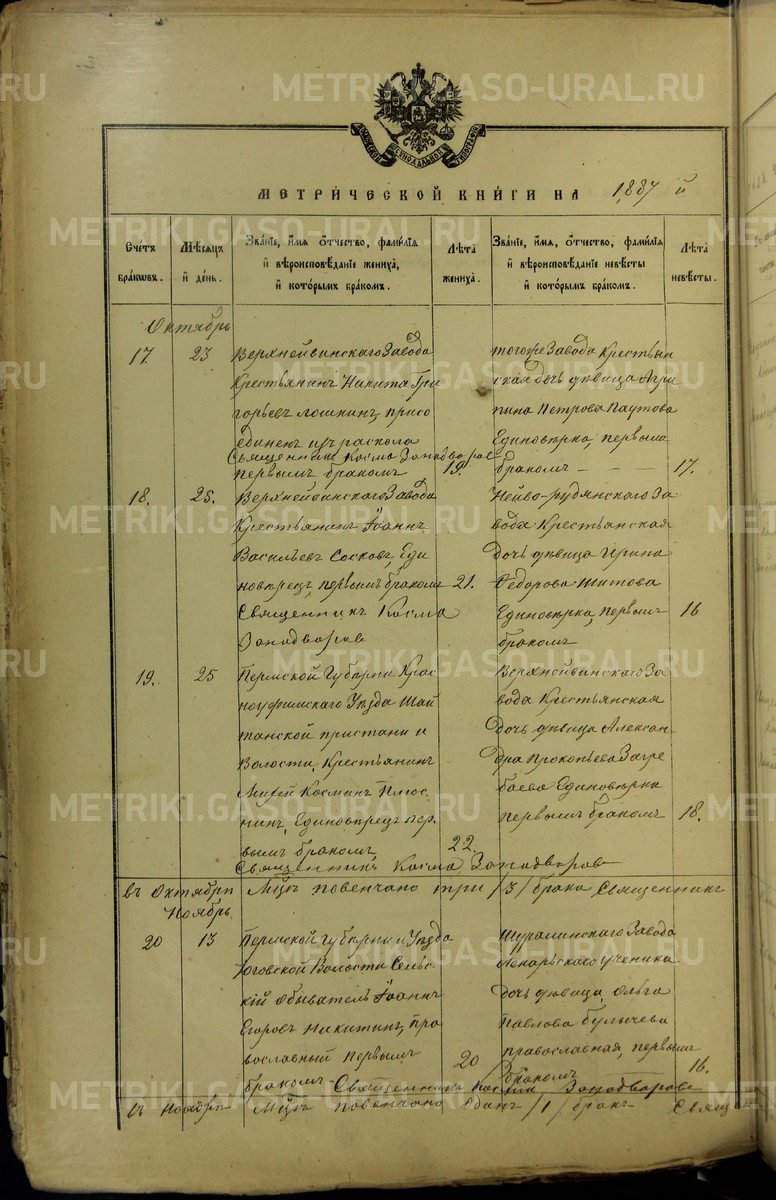 METRIKI.GASO-URAL.RU METRIKI.GASO-URAL.RU
МОСКОВСКОЙ СѴНОДАЛЬНОЙ ТИПОГРАФІИ
МЕТРИ́ЧЕСКОЙ КНИ́ГИ НА 1887 й
METRIKI.GASO-URAL.RU METRIKI.GASO-URAL.RU
Сче́тъ бра́кѡвъ.
Мѣ́сяцъ и҆ де́нь.
Зва́нїе, и҆́мѧ ѻ҆́тчество, фами́лїѧ и҆ вѣроисповѣ́данїе жениха̀, и҆ кото́рымъ бра́комъ.
Лѣ́та жениха̀.
Зва́нїе, и҆́мѧ, ѻ҆́тчество, фами́лїѧ и҆ вѣроисповѣ́данїе невѣ́сты и҆ кото́рымъ бра́комъ.
Лѣ́та невѣ́сты.
Октябрь
17. 23
Верхнейвинскаго Завода
Крестьянинъ Никита Гри
горьевъ Лошкинъ, присо
единенъ изъ раскола
Священникъ Косма Западворов
первымъ бракомъ
19.
тогоже Завода Крестьян
ская дочь дѣвица Агри
пина Петрова Паутова
Единовѣрка, первымъ
бракомъ – – –
17.
18. 25.
Верхнейвинскаго Завода
Крестьянинъ Іоаннъ
Васильевъ Сосковъ, Еди
новѣрецъ, первымъ бракомъ
21.
Священникъ Косма
Западворовъ
Нейво-рудянскаго За
вода Крестьянская
дочь дѣвица Ирина
Ѳедорова Шитова
Единовѣрка, первымъ
бракомъ
16
19. 25
Пермской Губерніи Крас
ноуфимскаго Уѣзда Шай
танской пристани и
Волости, Крестьянинъ
Михей Косминъ Плюс
нинъ, Единовѣрецъ пер
вымъ бракомъ
22.
Священникъ Косма Западворовъ
Верхнейвинскаго За
вода Крестьянская
дочь дѣвица Алексан
дра Прокопьева Загре
баева Единовѣрка
первымъ бракомъ
18.
въ Октябрѣ Мцѣ повенчано три /3/ брака Священникъ
Ноябрь
20 13
Пермской Губерніи и Уѣзда
Юговской Волости Сельс
кій обыватель Іоаннъ
Егоровъ Никитинъ, пра
вославный первымъ
бракомъ
20
Шуралинскаго Завода
Лекарьскаго ученика
дочь дѣвица Ольга
Павлова Булычева
православная, первымъ
бракомъ
16.
Священникъ Косма Западворовъ
въ Ноябрѣ Мцѣ повенчано единъ /1/ бракъ Священ